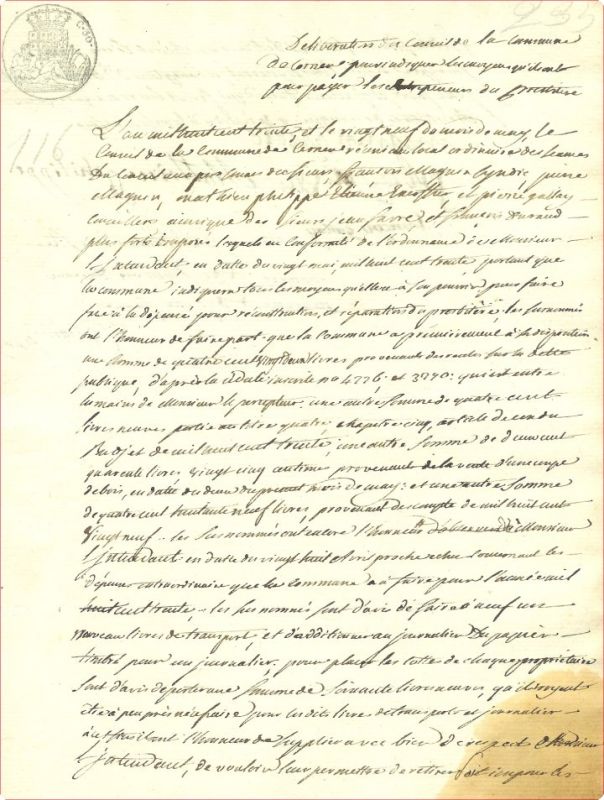 Deliberation du Conseil de la Commune
de Cerneu pour indiquer les moyens qu'ils ont
pour payer les Entrepreneurs du
L'an mil huit cent trente, et le vingt neuf du mois de may, le
Conseil de la Commune de Cerneu réuni au local ordinaire des seances
du Conseil aux personnes des sieurs françois Magnin Syndic, pierre
Magnin, mathieu philippe, Etienne et pierre gallay
Conseillers avec des Sieurs jean favre, et
plus forts Imposés lesquels en Conformité de l'ordonnance de Monsieur
L'Intendant, en datte du vingt mai, mil huit cent trente, portant que
la commune indiquera tous les moyens qu'elle a à son pouvoir pour faire
face à la dépense pour réconstruction, et réparation du presbitère, les susnommés
ont l'honneur de faire part que la Commune a premièrement à sa disposition
une somme de quatre cent vingt livres provenants des rentes sur la dette
publique, d'après la no 4776: et 3770: qui est entre
les mains de Monsieur le percepteur: une autre somme de quatre cent
livres neuves portée au titre quatre, chapitre cinq, article
Budjet de mil huit cent trente, une autre somme de deux cent
quarante livres vingt cinq centimes provenant de la vente d'une coupe
de bois, en datte du deux du present mois de may: et une autre somme
de quatre cent trente neuf livres, provenant des compte de mil huit cent
Vingt neuf. les susnommés ont encore l'honneur d' Monsieur
L'Intendant en datte du vingt huit avril proche echu concernant les
dépenses extraordinaire que la commune a à faire pour l'année mil
huit cent trente, les susnommés sont d'avis de faire à neuf un
nouveau livres de transport, et d'additionner au journalier du papier
timbré pour un journalier, pour placer les cotte de chaque propriétaire
sont d'avis de porter une somme de soixante livres neuves, qu'ils croyent
être à peu près nécessaire pour les dits livre de transport et journalier
l'honneur de supplier avec bien de respect Monsieur
L'Intendant, de vouloir leur permettre de retirer